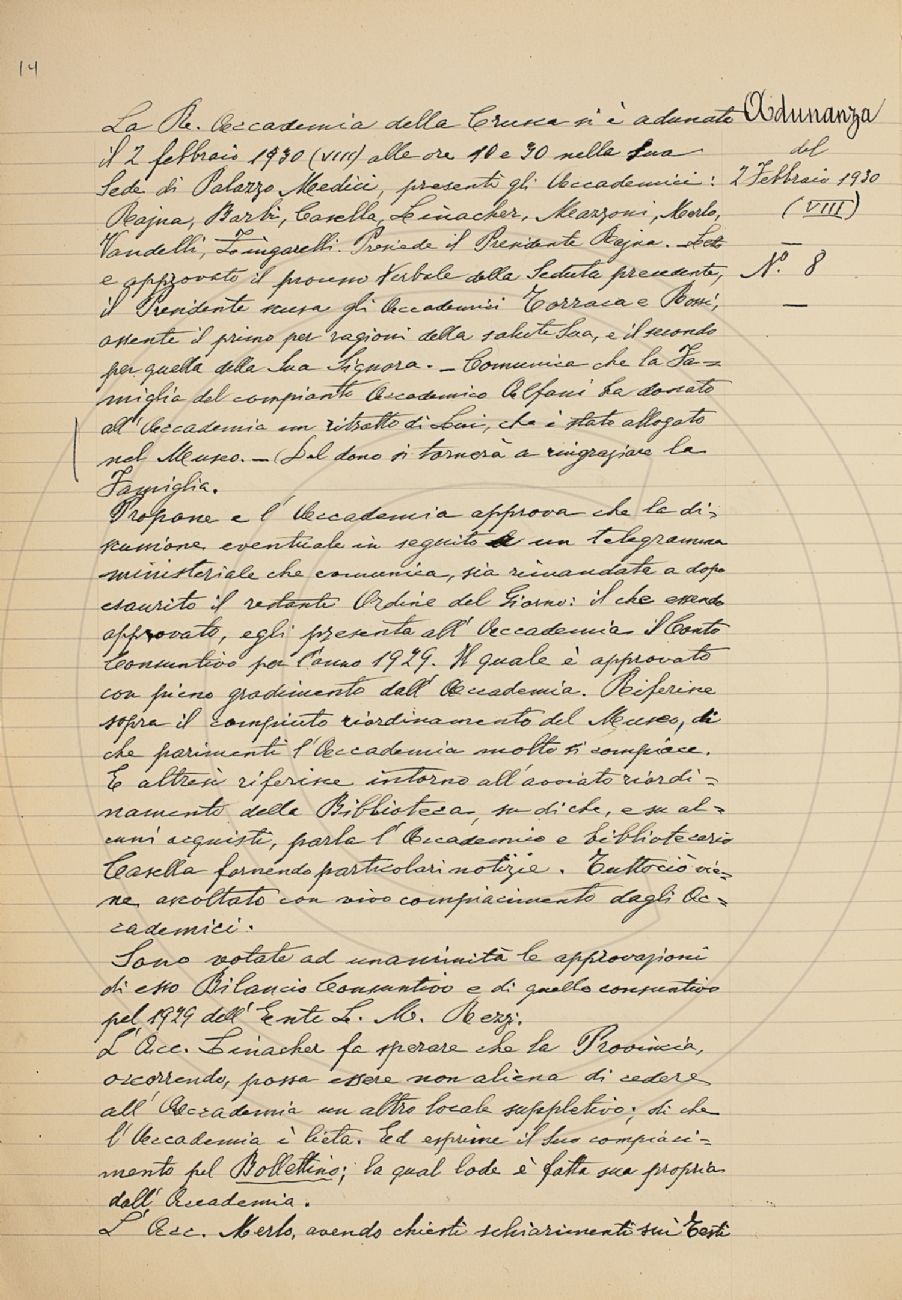 14
Adunanza
del
2 Febbraio 1930
(VIII)
Nº. 8
La R. Accademia della Crusca si è adunata
il 2 febbraio 1930 (VIII) alle ore 10 e 30 nella sua
Sede di Palazzo Medici, presenti gli Accademici:
Rajna, Barbi, Casella, Linacher, Mazzoni, Merlo,
Vandelli, Zingarelli. Presiede il Presidente Rajna. – Letto
e approvato il processo Verbale della Seduta precedente,
il Presidente scusa gli Accademici Torraca e Rossi,
assente il primo per ragioni della salute Sua, e il secondo
per quella della Sua Signora. – Comunica che la Fa=
miglia del compianto Accademico Alfani ha donato
all'Accademia un ritratto di Lui, che è stato allogato
nel Museo. – (Del dono si tornerà a ringraziare la
Famiglia.
Propone e l'Accademia approva che la di=
scussione eventuale in seguito a un telegramma
ministeriale che comunica, sia rimandata a dopo
esaurito il restante Ordine del Giorno: il che essendo
approvato, egli presenta all'Accademia il Conto
Consuntivo per l'anno 1929. Il quale è approvato
con pieno gradimento dall'Accademia. Riferisce
sopra il compiuto riordinamento del Museo, di
che parimenti l'Accademia molto si compiace.
E altresì riferisce intorno all'avviato riordi=
namento della Biblioteca, su di che, e su al=
cuni acquisti, parla l'Accademico e bibliotecario
Casella fornendo particolari notizie. Tuttociò vie=
ne ascoltato con vivo compiacimento dagli Ac=
cademici.
Sono votate ad unanimità le approvazioni
di esso Bilancio Consuntivo e di quello consuntivo
pel 1929 dell'Ente L. M. Rezzi.
L'Acc. Linacher fa sperare che la Provincia,
occorrendo, possa essere non aliena di cedere
all'Accademia un altro locale suppletivo; di che
l'Accademia è lieta. Ed esprime il suo compiaci=
mento pel Bollettino; la qual lode è fatta sua propria
dall'Accademia.
L'Acc. Merlo, avendo chiesti schiarimenti sui Testi